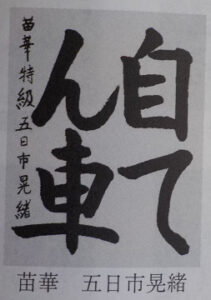 自て
ん車
苗華特級五日市晃緒
苗華 五日市晃緒